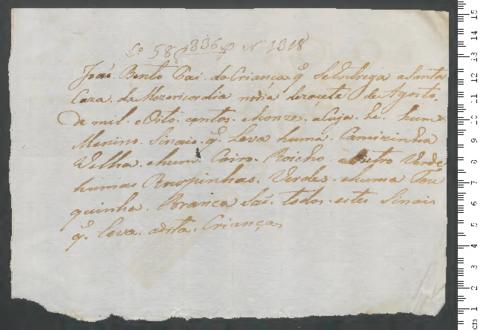 João Bento Pai do Criança q. Se Intrega a Santa
Caza da Mezericordia no dia dezasete de Agosto
de mil e Oito centos e honze a Cuja he hum
Menino. Sinais q. Leva huma Camizinha
Velha e hum Coiro. Roicho e outro Verde
humas Roupinhas. Verdes. e huma Tou
quinha. Branca Sai. todos. estes Sinais
q. Leva. a esta. Criança